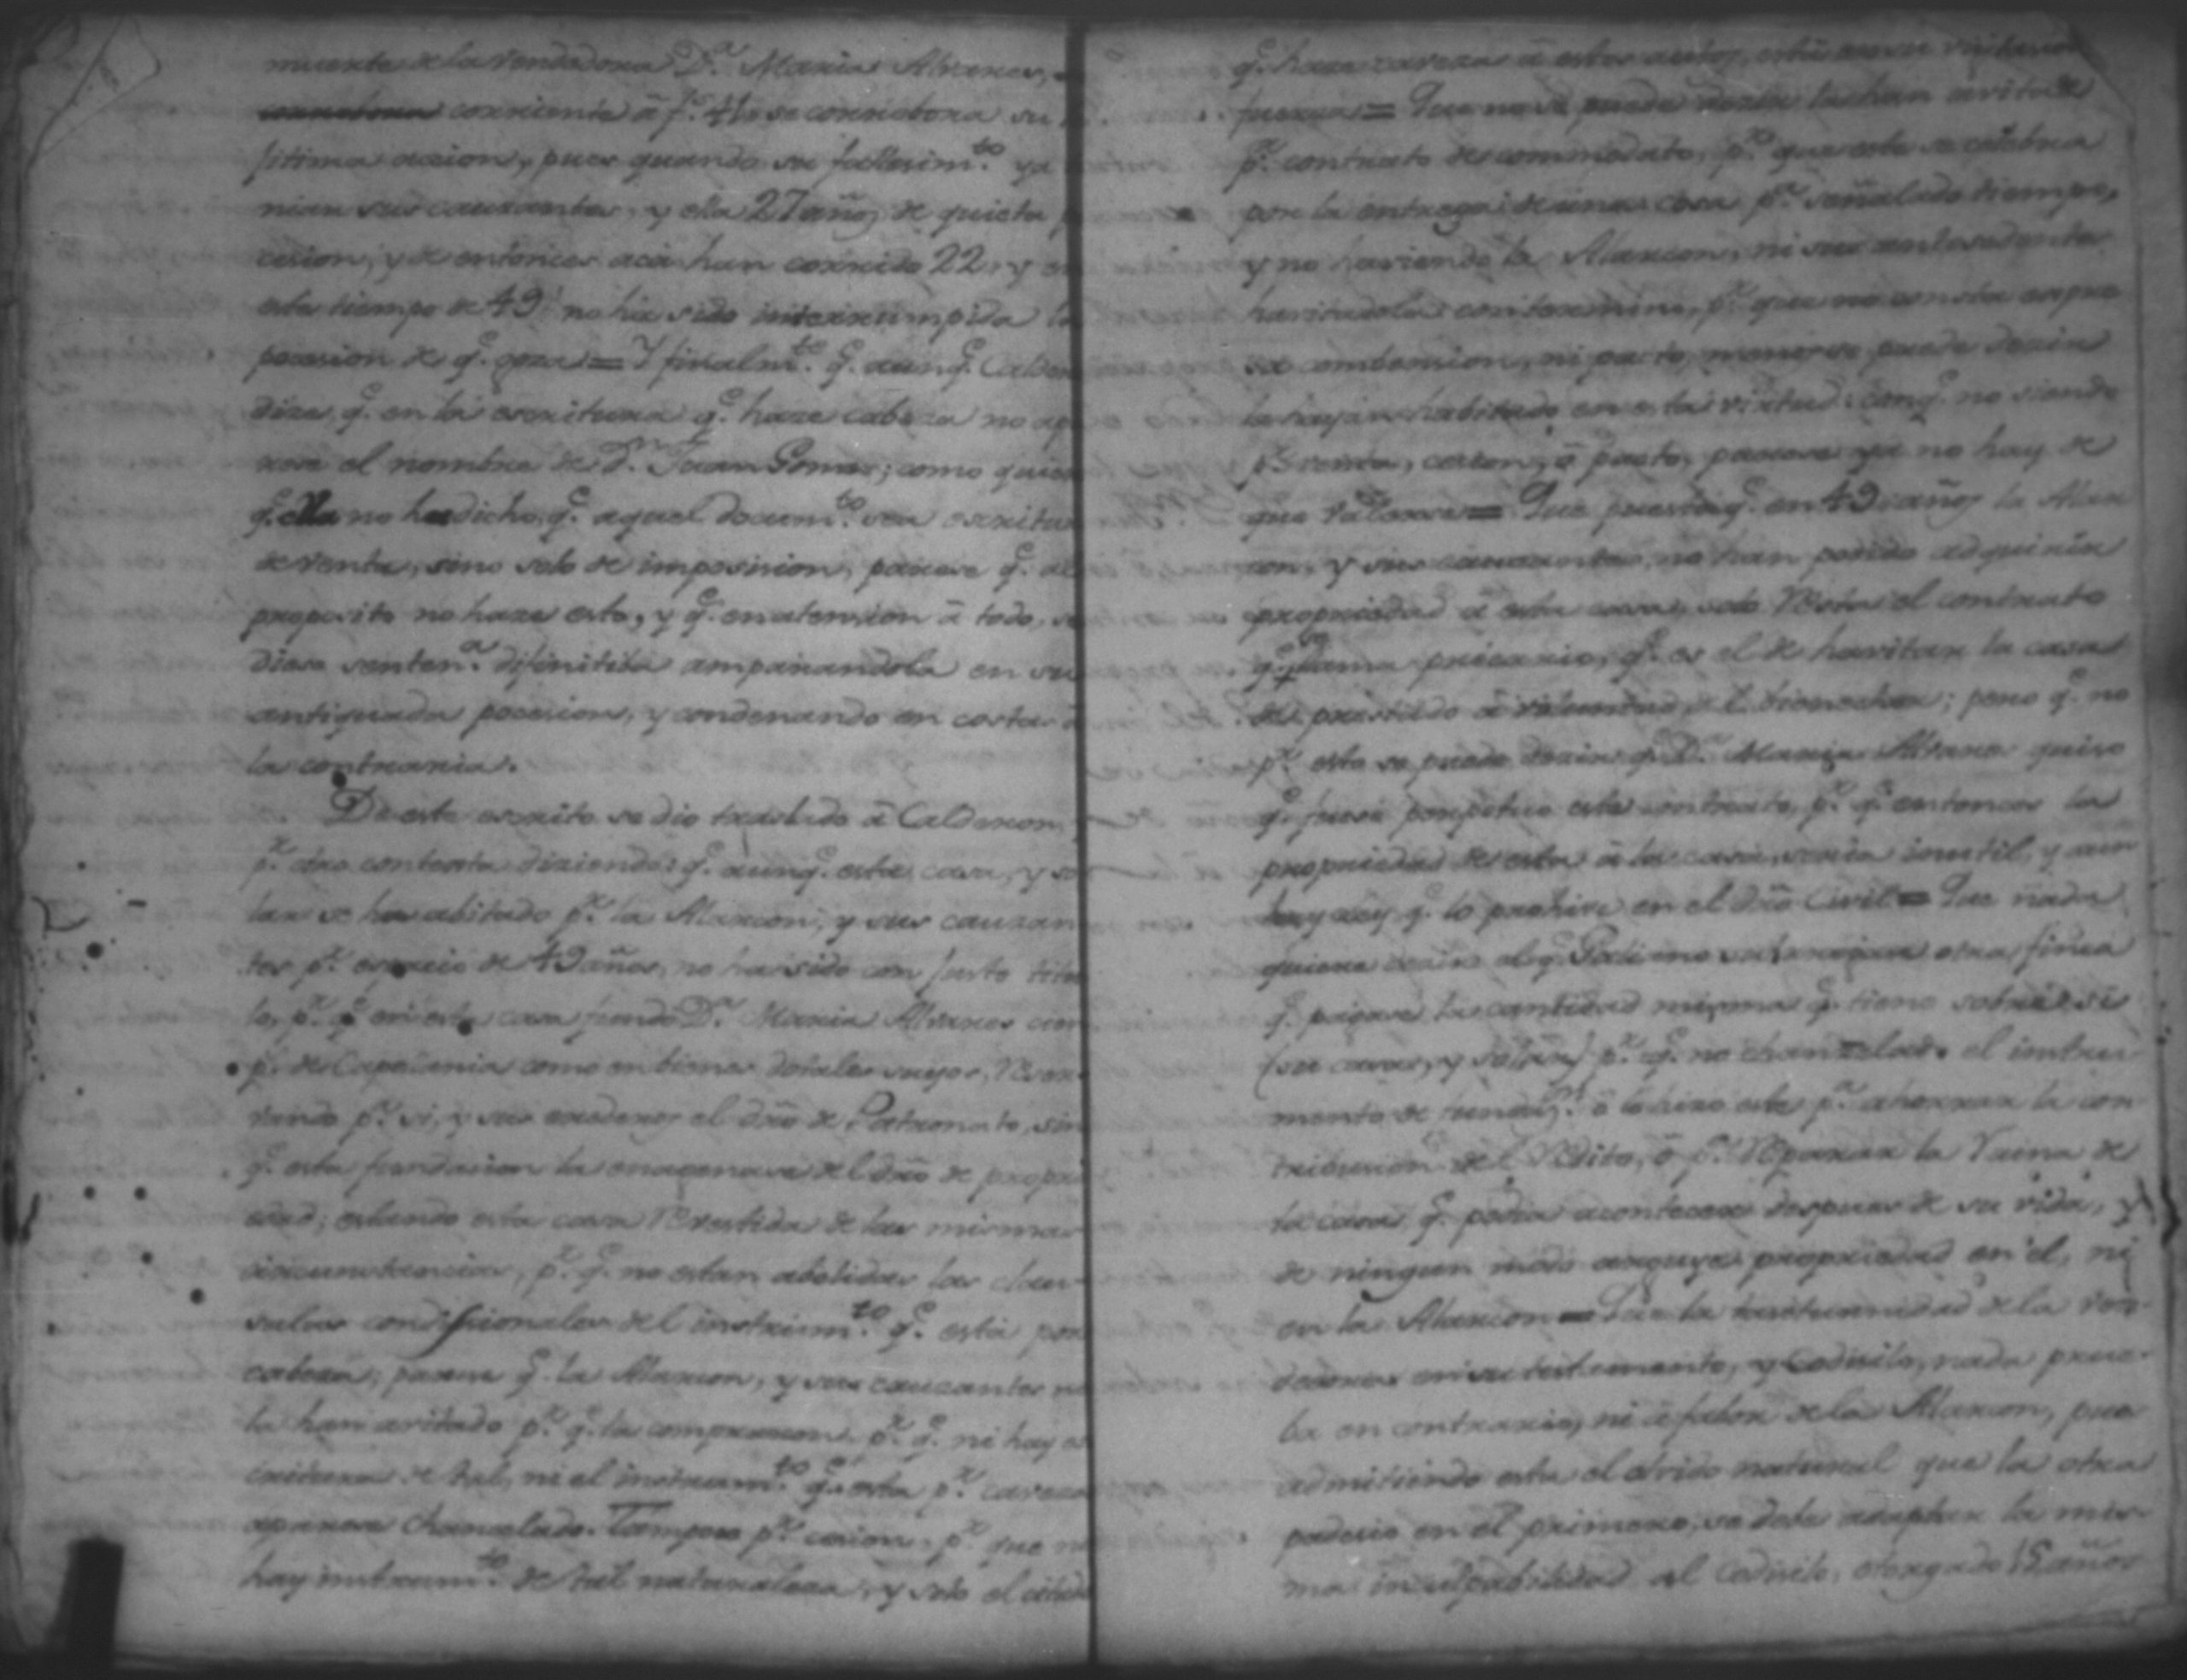 muerte de la Vendedora D.ª Maria Alvares,
corriente à f.ˢ se corrobora su
jitima accion, pues quando su fallesim.ᵗᵒ ya
nian sus causantes, y ella 27 años de quieta
cesion, y de entonces acà han corrido 22, y en
este tiempo de 49 no ha sido interrumpida la
pocesion de q.ᵉ goza = Y finalm.ᵗᵉ q.ᵉ aunq.ᵉ Calder
dize q.ᵉ en la escritura q.ᵉ haze cabeza no ap
rese el nombre de D.ⁿ Juan Gomes; como quier
q.ᵉ ella no ha dicho, q.ᵉ aquel docum.ᵗᵒ sea escritu
de venta, sino solo de imposicion, parese q.ᵉ al
proposito no haze esto, y q.ᵉ en atension à todo, se
diese senten.ᵃ difinitiba amparandola en su
antiguada pocesion, y condenando en costas à
la contraria.
De este escrito se dio traslado à Calderon,
p.ʳ contesta diziendo: q.ᵉ aunq.ᵉ esta casa, y so
lar se ha abitado p.ʳ la Alarcon, y sus causan
tes p.ʳ espacio de 49 años, no ha sido con justo titu
lo, p.ʳ q.ᵉ en esta casa fundò D.ª Maria Alvares
p.ˢ de Capellania como en bienes dotales suyos, Reser
vando p.ª si, y sus erederos el dro de Patronato, sin
q.ᵉ esta fundacion la enagenase del dro de propri
edad; estando esta casa Revestida de las mismas
circunstancias, p.ʳ q.ᵉ no estan abolidas las clau
sulas condisionales del instrum.ᵗᵒ q.ᵉ està por
cabeza; parese q.ᵉ la Alarcon, y sus causantes no
la han avitado p.ʳ q.ᵉ la compraron, p.ʳ q.ᵉ ni hay es
critura de tal, ni el instrum.ᵗᵒ q.ᵉ esta p.ʳ caveza
aparese chancelado. Tampoco p.ʳ cecion, p.ʳ que no
hay instrum.ᵗᵒ de tal naturaleza, y solo el citado
q.ᵉ haze caveza à estos autos, està en su
fuerza = Que no se puede dezir la han avitado
p.ʳ contrato de commodato, p.ʳ que este se celebra
por la entrega de una cosa p.ʳ señalado tiempo,
y no haviendo la Alarcon, ni sus antesedentes
havitadola con termino, p.ʳ que no consta expre
sa combension, ni pacto, menos se puede dezir
la hayan habitado en esta virtud: conq.ᵉ no siendo
p.ʳ venta, cecion, ô pacto, parese ya no hay de
que valerse = Que puesto q.ᵉ en 49 años la Alar
con, y sus causantes no han podido adquirir
propriedad à esta casa, solo Resta el contrato
q.ᵉ llama precario, q.ᵉ es el de havitar la casa
de prestado à voluntad del bienechor; pero q.ᵉ no
p.ʳ esto se puede dezir q.ᵉ D.ª Maria Alvares quiso
q.ᵉ fuese perpetuo este contrato, p.ʳ q.ᵉ entonces la
propriedad de esta à la casa, seria inutil, y aun
hay ley q.ᵉ lo prohive en el dro Civil = Que nada
quiere dezir otra finca
q.ᵉ pagase la cantidad misma q.ᵉ tiene sobre si
(su casa, y solar) p.ʳ q.ᵉ no chancelado el instru
mento de ô lo hizo este p.ʳ ahorrar la con
tribucion del Redito, ô p.ʳ Reparar la Ruina de
la casa q.ᵉ podia acontecer despues de su vida, y
de ningun modo arguye propriedad en el, ni
en la Alarcon = Que la tasiturnidad de la Ven
dedora en su testamento, y Codisilo, nada prue
ba en contrario, ni à fabor de la Alarcon, pues
admitiendo esta el olvido natural que la otra
padecio en el primero, se debe adaptar la mis
ma inculpabilidad al Codisilo, otorgado 15 años